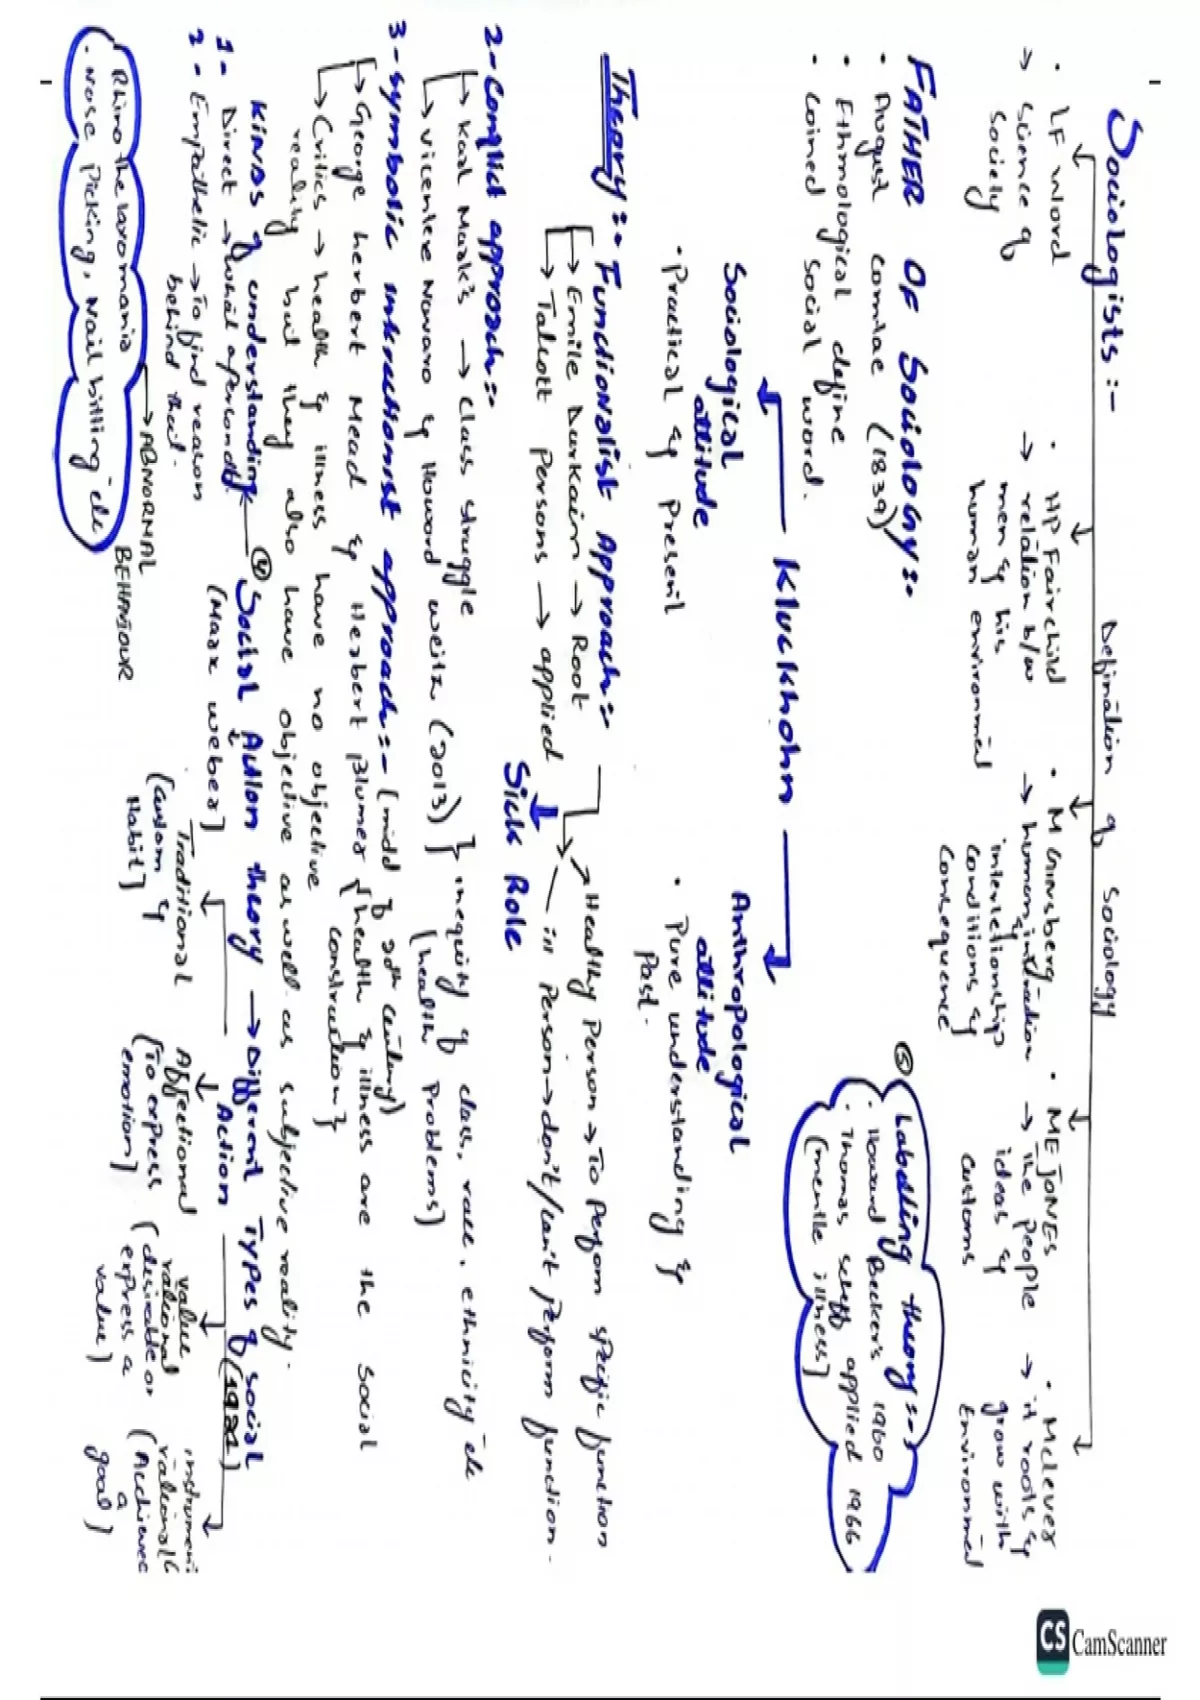 Sociologists :-
Defination of sociology
· LF Word
→ Science of
Society
· HP Fairchild
→ relation b/w
men & his
human environment
· M Ginsberg
→ human intraction
interletionship
conditions &
consequence
· ME JONES
→ the people
ideas &
customs
· Mclever
→ it roots &
grow with
Environment
FATHER OF Sociology:-
· August comtae (1839)
· Ethmological define
· coined social word.
⑤ Labelling theory:-
· Howard Becker's 1960
· Thomas scheff applied 1966
(mentle illness)
Kluckhohn
Sociological
attitude
· Practical & Present
Anthropological
attitude
· Pure understanding &
Past.
Theory:-
· Functionalist Approach:-
→ Emile Durkaim → Root
→ Talcott Persons → applied
Sick Role
→ Healthy Person → To Perform specific function
→ ill Person → don't/can't perform function.
2- Conflict approach:-
→ Karl Mark's → class struggle
→ vicenley Navaro & Howord weitz (2013)
} inequity of class, race, ethnicity etc
(health Problems)
3- Symbolic intractionist approach:- (midd of 20th century)
→ George herbert Mead & Herbert Blumer {health & illness are the social
construction}
→ Critics → health & illness have no objective
reality but they also have objective as well as subjective reality.
Kinds of understanding
1- Direct → what a person do
2- Empathetic → To find reason
behind that.
④ Social Action theory → Different Types of social
(Max weber) Action (1921)
Traditional
(custom &
Habit)
Affectional
(To express
emotion)
value
rational
(desirable or
express a
value)
instrument
rational
(Achieve
a
goal)
Rhino the laxomania → ABNORMAL BEHAVIOUR
· Nose picking, Nail bitting etc
CS CamScanner